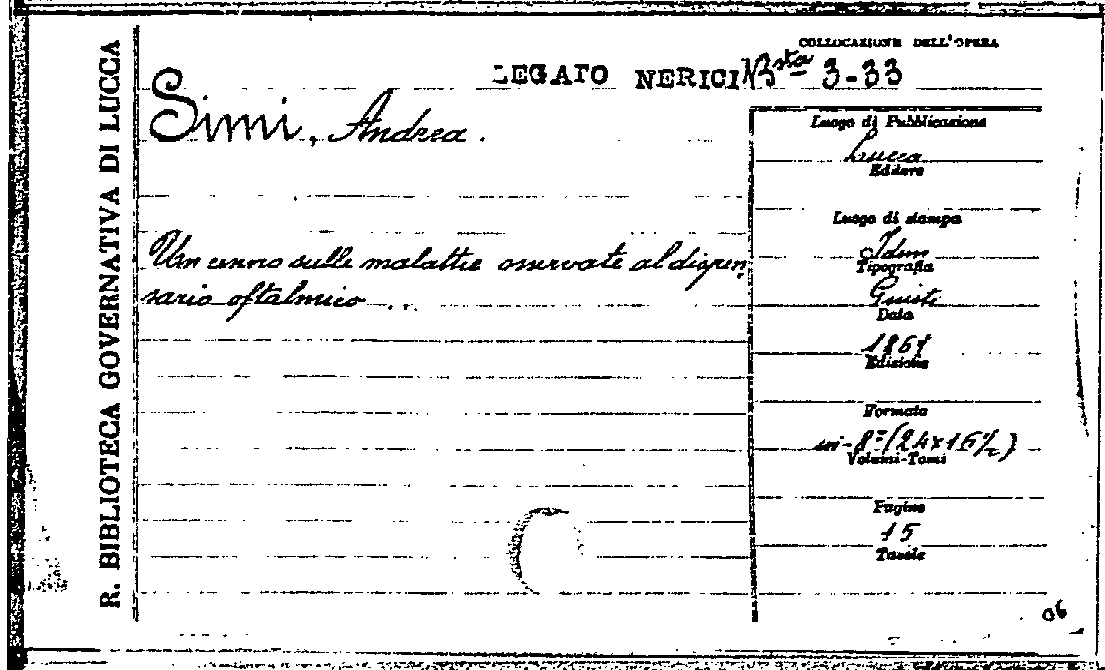 R. BIBLIOTECA GOVERNATIVA DI LUCCA
COLLOCAZIONE DELL'OPERA
LEGATO NERICI Bsta 3-33
Simi, Andrea.
Un cenno sulle malattie osservate al dispen-
sario oftalmico ...
Luogo di Pubblicazione
Lucca
Editore
Luogo di stampa
Idem
Tipografia
Giusti
Data
1867
Edizione
Formato
in-8° (24x16½)
Volumi-Tomi
Pagine
15
Tavole
06